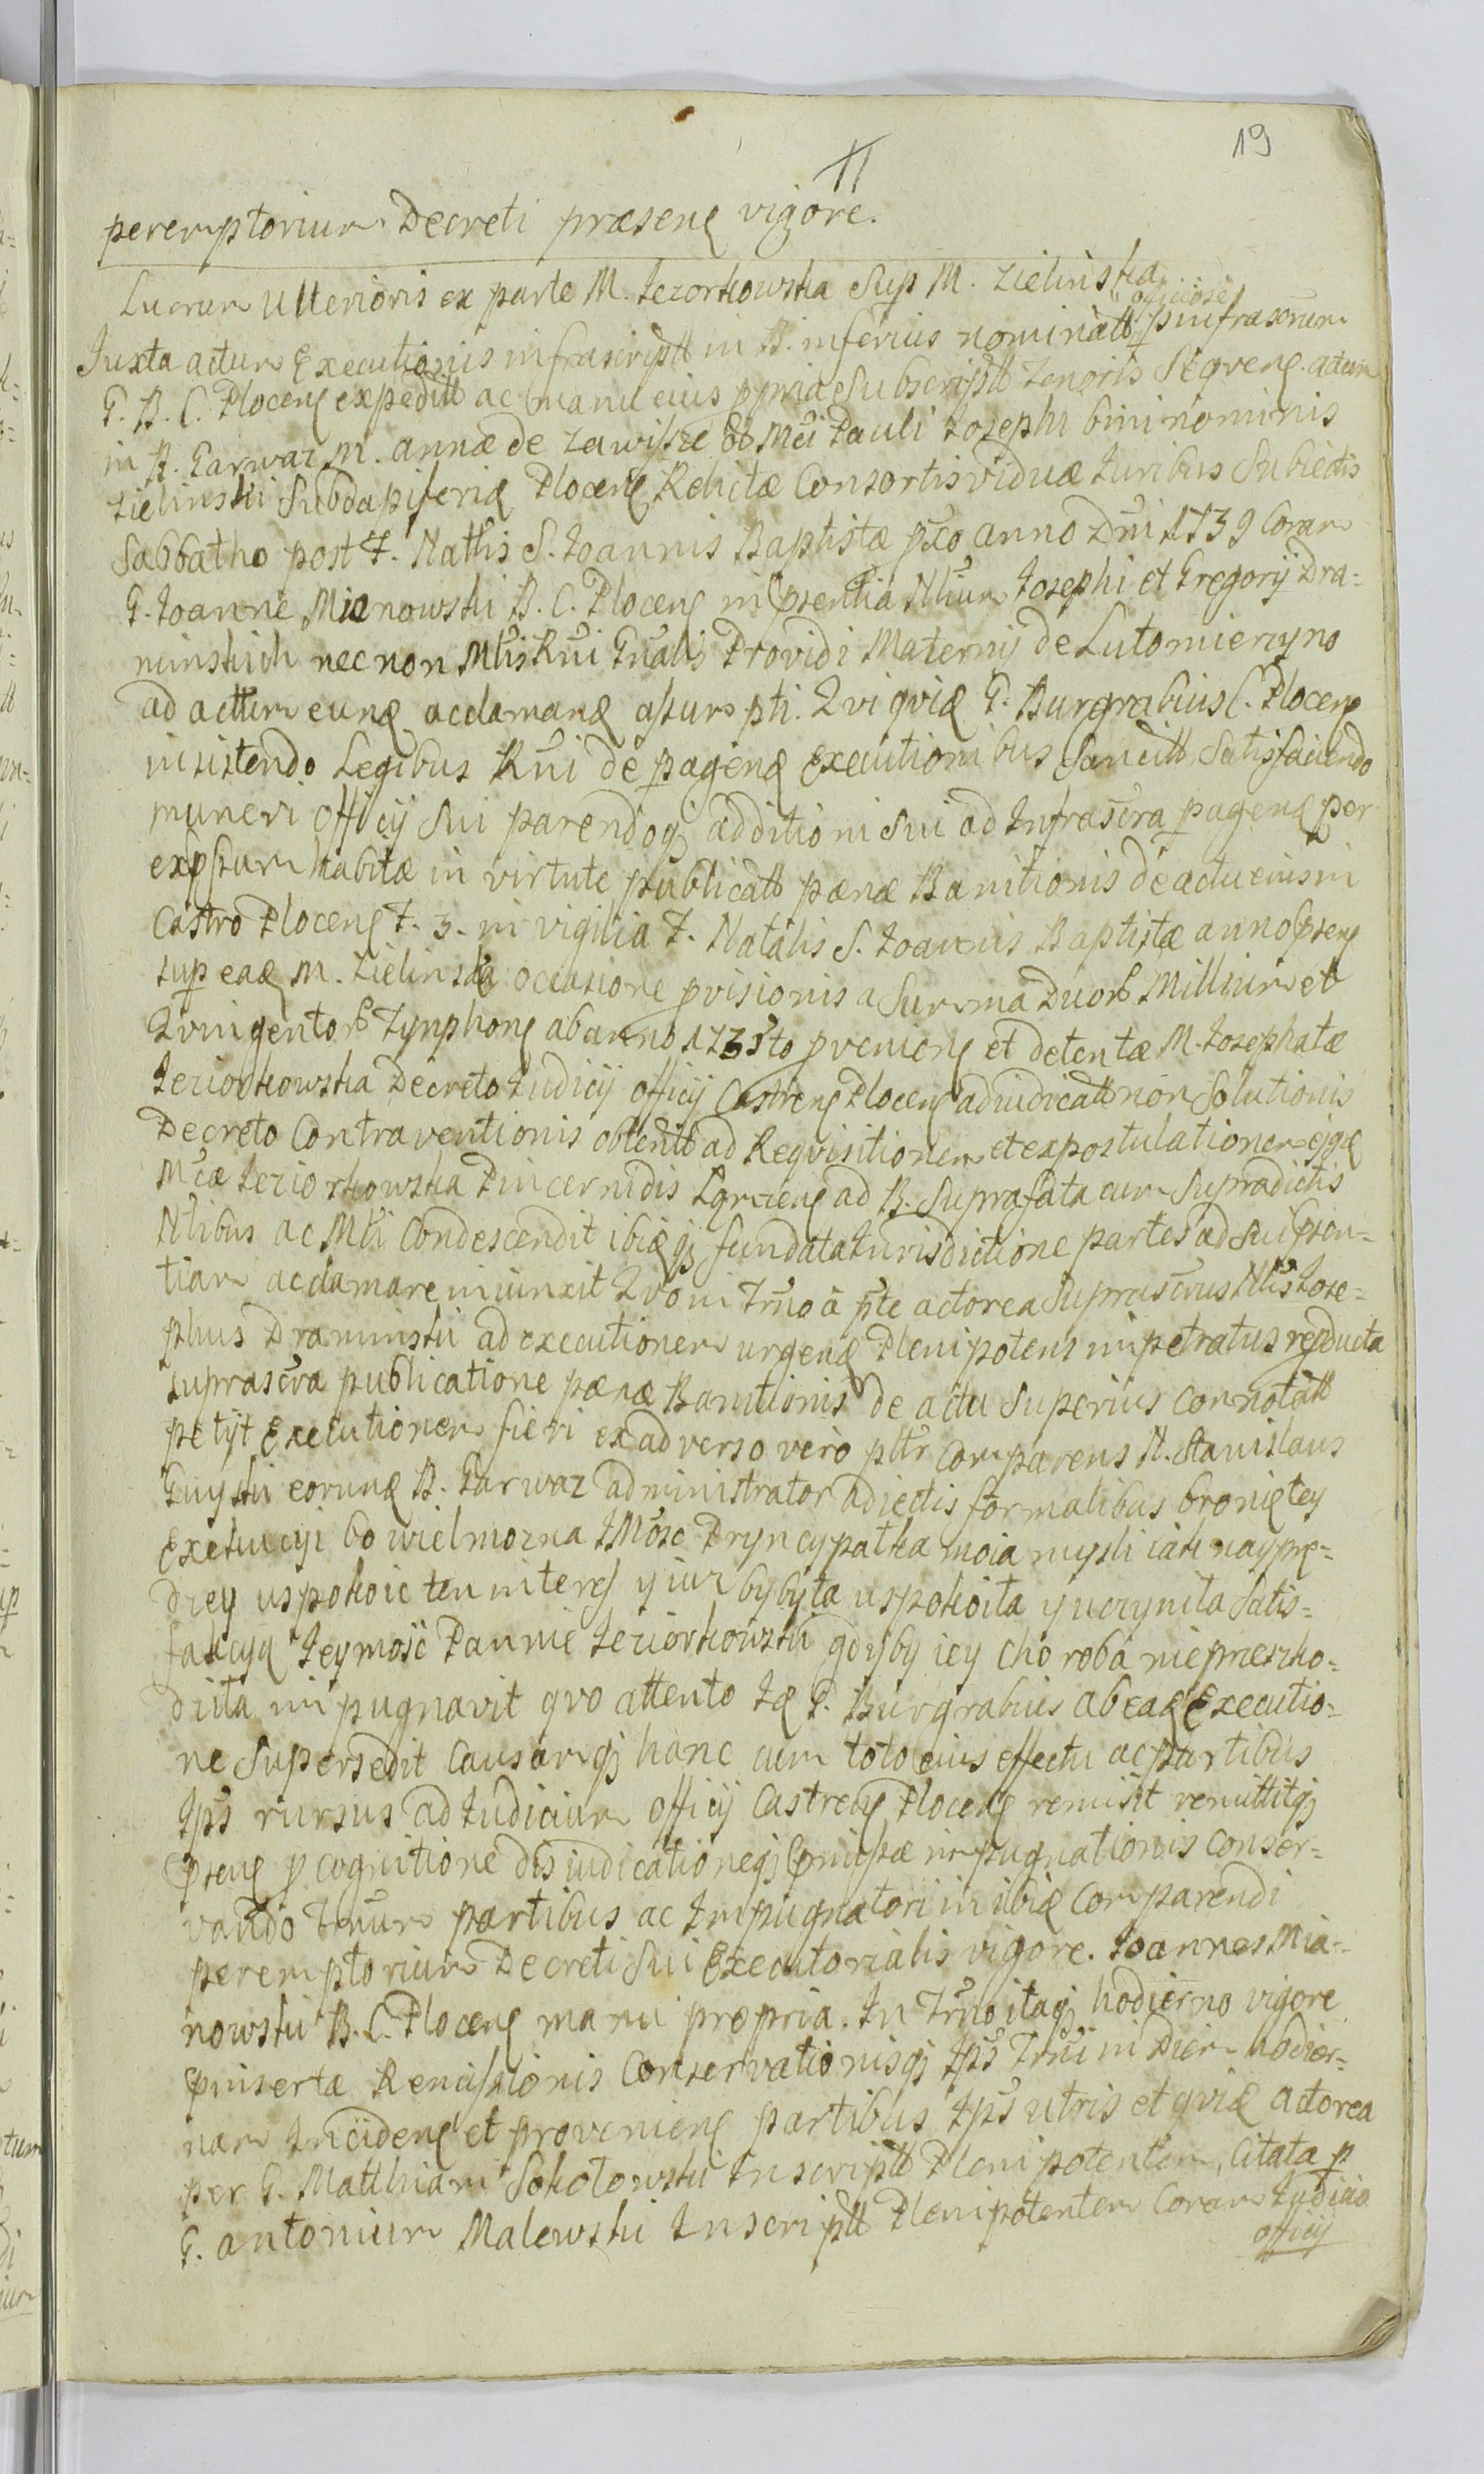 19
11
peremptorium Decreti præsenę vigore.
Lucrum Ulterioris ex parte M. Jeziorkowska Sup M. Zielinska
officiose
Juxta actum Executionis infrascriptt in B. inferius nominatt p infrascrum
G. B. C. Plocenę expeditt ac manu eius ppria Subscriptt Tenoris Seqvenę. actum
in B. Garwaz M. annæ de Zawisze olt Mci Pauli Josephi binominis
Zielinski Subdapiferię Plocenę Relictæ Consortis viduæ Juribus Subiectis
Sabbatho post F. Nattis S. Joannis Baptistæ pxo anno Dni 1739 Coram
G. Joanne Mianowski B. C. Plocenę in psentia Nlium Josephi et Gregorij Dra=
minskich nec non Mlis Rni Gnalis Providi Materny de Lutomierzyno
ad acttum eunę acclamanę assumpti. Qui qvię G. Burgrabius C. Plocenę
insistendo Legibus Rni de pagenę Executionibus Sancitt, Satisfaciendo
muneri Officij Sui parendoq additioni Sui ad Infrascra pagenę per
expssum habitæ in virtute publicatt pænæ Banitionis de actu eiusmi
Castro Plocenę F. 3. in vigilia F. Natalis S. Joannis Baptistæ anno psenę
sup eaę M. Zielinska occasione pvisionis a Summa Duorb Millium et
Qvingentorb Tynphonę ab anno 1735to pvenienę et detentæ M. Josephatæ
Jeziorkowska Decreto Judicij officij Castrenę Plocenę adiudicatt non Solutionis
Decreto Contraventionis obtentt ad Reqvisitionem et expostulationem ejgę
Mcæ Jeziorkowska Pincernidis Zgrzenę ad B. Suprafata cum Supradictis
Nlibus ac Mli Condescendit ibięq fundata Jurisdictione partes ad Sui psen=
tiam acclamare iniunxit Qvo in Trno à pte actorea Suprascrus Nlis Jose=
phus Draminski ad executionem urgenę Plenipotens impetratus reducta
suprascra publicatione pænæ Banitionis de actu Superius Connotatt
petijt Executionem fieri ex adverso vero pttr Comparens N. Stanislaus
Guyski eorunę B. Garwaz administrator adiectis formalibus bronię tey
Exekucyi bo wielmozna JMosc Pryncypałka moia mysli iak nayprę=
dzey uspokoic ten interes y iuz by była uspokoiła y uczyniła Satis=
fakcyą Jeymosc Pannie Jeziorkowski gdyby iey choroba nieprzeszko=
dziła impugnavit qvo attento Ję G. Burgrabius ab eaę Executio=
ne Supersedit Causamq hanc cum toto eius effectu ac partibus
Jps rursus ad Judicium officij Castrenę Plocenę remisit remittitq
psenę p cognitione disiudicationeq pmissæ impugnationis Conser=
vando Trnum partibus ac Impugnatori in ibię Comparendi
peremptorium Decreti Sui Executorialis vigore. Joannes Mia=
nowski B. C. Plocenę manu propria. In Trno itaq hodierno vigore
pinsertæ Remissionis Conservationisq Jps Trni in Diem hodier=
nam Incidenę et provenienę partibus Jps utris et qvię actorea
per G. Matthiam Sokołowski Inscriptt Plenipotentem, Citata p
G. antonium Malewski Inscriptt Plenipotentem Coram Judicio
officij